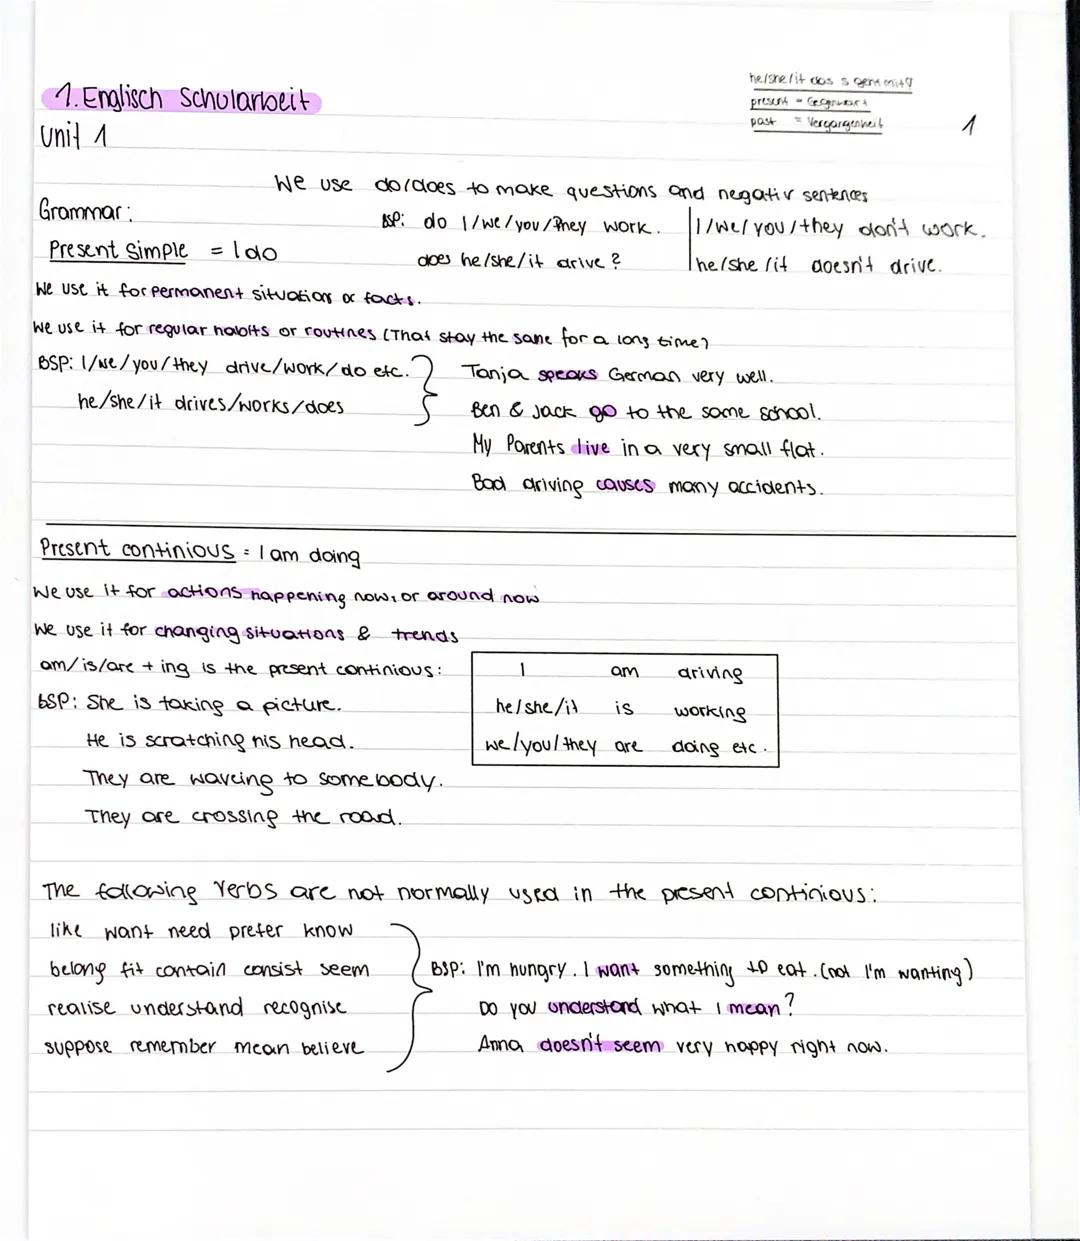 he/she/it das s geht mit!
present = Gegenwart
past = Vergangenheit
1
1. Englisch Schularbeit
Unit 1
We use do/does to make questions and negativ sentences
Grammar:
BSP: do I/we/you/they work. I/we/you/they don't work.
Present Simple = I do
does he/she/it drive? he/she/it doesn't drive.
We use it for permanent situation or facts.
We use it for regular habits or routines (That stay the same for a long time)
BSP: I/we/you/they drive/work/do etc. Tanja speaks German very well.
he/she/it drives/works/does Ben & Jack go to the same school.
My Parents live in a very small flat.
Bad driving causes many accidents.
Present continious = I am doing
We use it for actions happening now, or around now
We use it for changing situations & trends
am/is/are + ing is the present continious: I am driving
BSP: She is taking a picture. he/she/it is working
He is scratching his head. we/you/they are doing etc.
They are waveing to somebody.
They are crossing the road.
The following Verbs are not normally used in the present continious:
like want need prefer know
belong fit contain consist seem BSP: I'm hungry. I want something to eat. (not I'm wanting)
realise understand recognise Do you understand what I mean?
suppose remember mean believe Anna doesn't seem very happy right now.